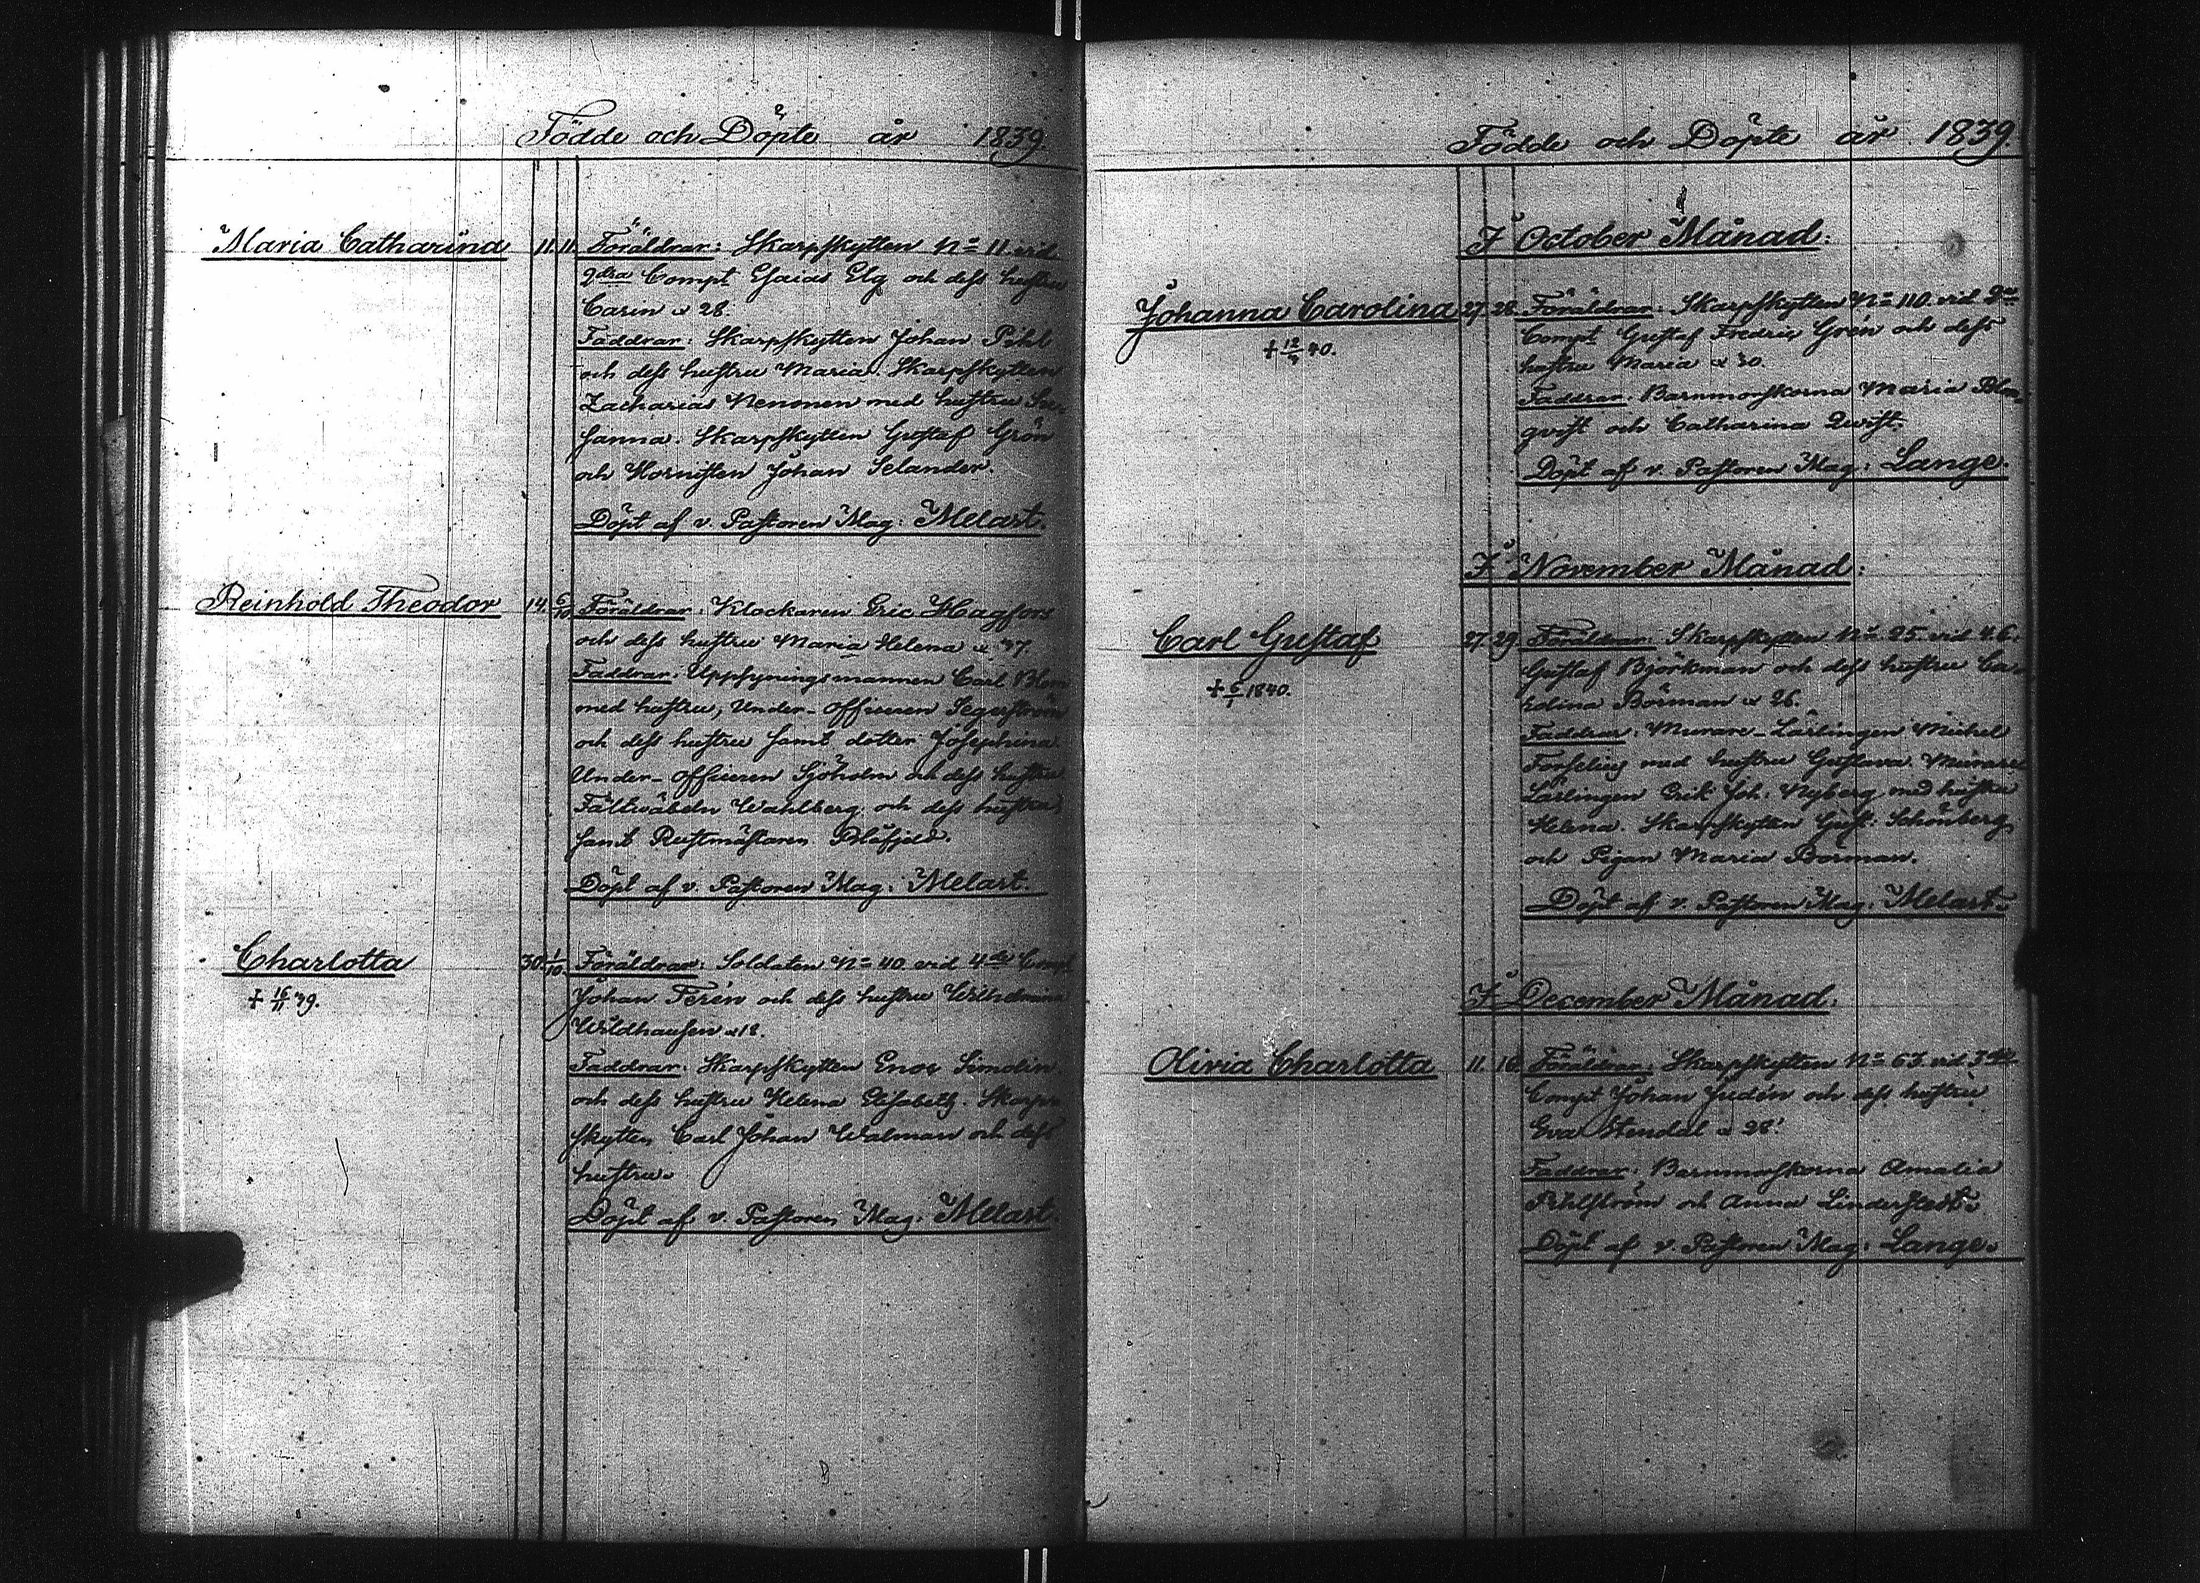 Födde och Döpte år 1839.
Maria Catharina 11. 11. Föräldrar: Skarpskytten No 11 vid
2dra Compt Esaias Elg och dess hustru
Carin æ 28.
Faddrar: Skarpskytten Johan Pihl
och dess hustru Maria. Skarpskytten
Zacharias Nenonen med hustru Su-
sanna. Skarpskytten Gustaf Grön
och Hornisten Johan Selander.
Döpt af v. Pastoren Mag: Melart.
Reinhold Theodor 14. 6/10 Föräldrar: Klockaren Eric Hagfors
och dess hustru Maria Helena æ 37.
Faddrar: Uppsyningsmannen Carl Blom
med hustru, Under-officeren Segerström
och dess hustru samt dotter Josephina.
Under-officeren Sjöholm och dess hustru
Fältwäbeln Wahlberg och dess hustru,
samt Rustmästaren Blåfjeld.
Döpt af v. Pastoren Mag: Melart.
Charlotta 30. 1/10. Föräldrar: Soldaten No 40 vid 4de Compt
+ 16/11 39. Johan Ferén och dess hustru Wilhelmina
Wildhausen æ 18.
Faddrar: Skarpskytten Enoc Simolin
och dess hustru Helena Elisabeth. Skarp-
skytten Carl Johan Walman och dess
hustru.
Döpt af v. Pastoren Mag: Melart.
Födde och Döpte år 1839.
I October Månad:
Johanna Carolina 27. 28. Föräldrar: Skarpskytten No 110 vid
Compt Gustaf Fredric Grén och dess
+ 40. hustru Maria æ 30.
Faddrar: Barnmorskorna Maria
qvist och Catharina Qvist.
Döpt af v. Pastoren Mag: Lange.
I November Månad:
Carl Gustaf 27. 29. Föräldrar: Skarpskytten No 25 vid 4 C.
Gustaf Björkman och dess hustru Ca-
+ 6/1 1840. rolina Börman æ 26.
Faddrar: Murare-Lärlingen Michel
Forselius med hustru Gustava. Murare
Lärlingen Erik Joh. Nyberg med hustru
Helena. Skarpskytten Gust: Schönberg
och Pigan Maria Börman.
Döpt af v. Pastoren Mag: Melart.
I December Månad.
Olivia Charlotta 11. 16. Föräldrar: Skarpskytten No 63 vid 3dje
Compt Johan Judén och dess hustru
Eva Stendal æ 28.
Faddrar: Barnmorskorna Amalia
Pihlström och Anna Linderstedt.
Döpt af v. Pastoren Mag: Lange.